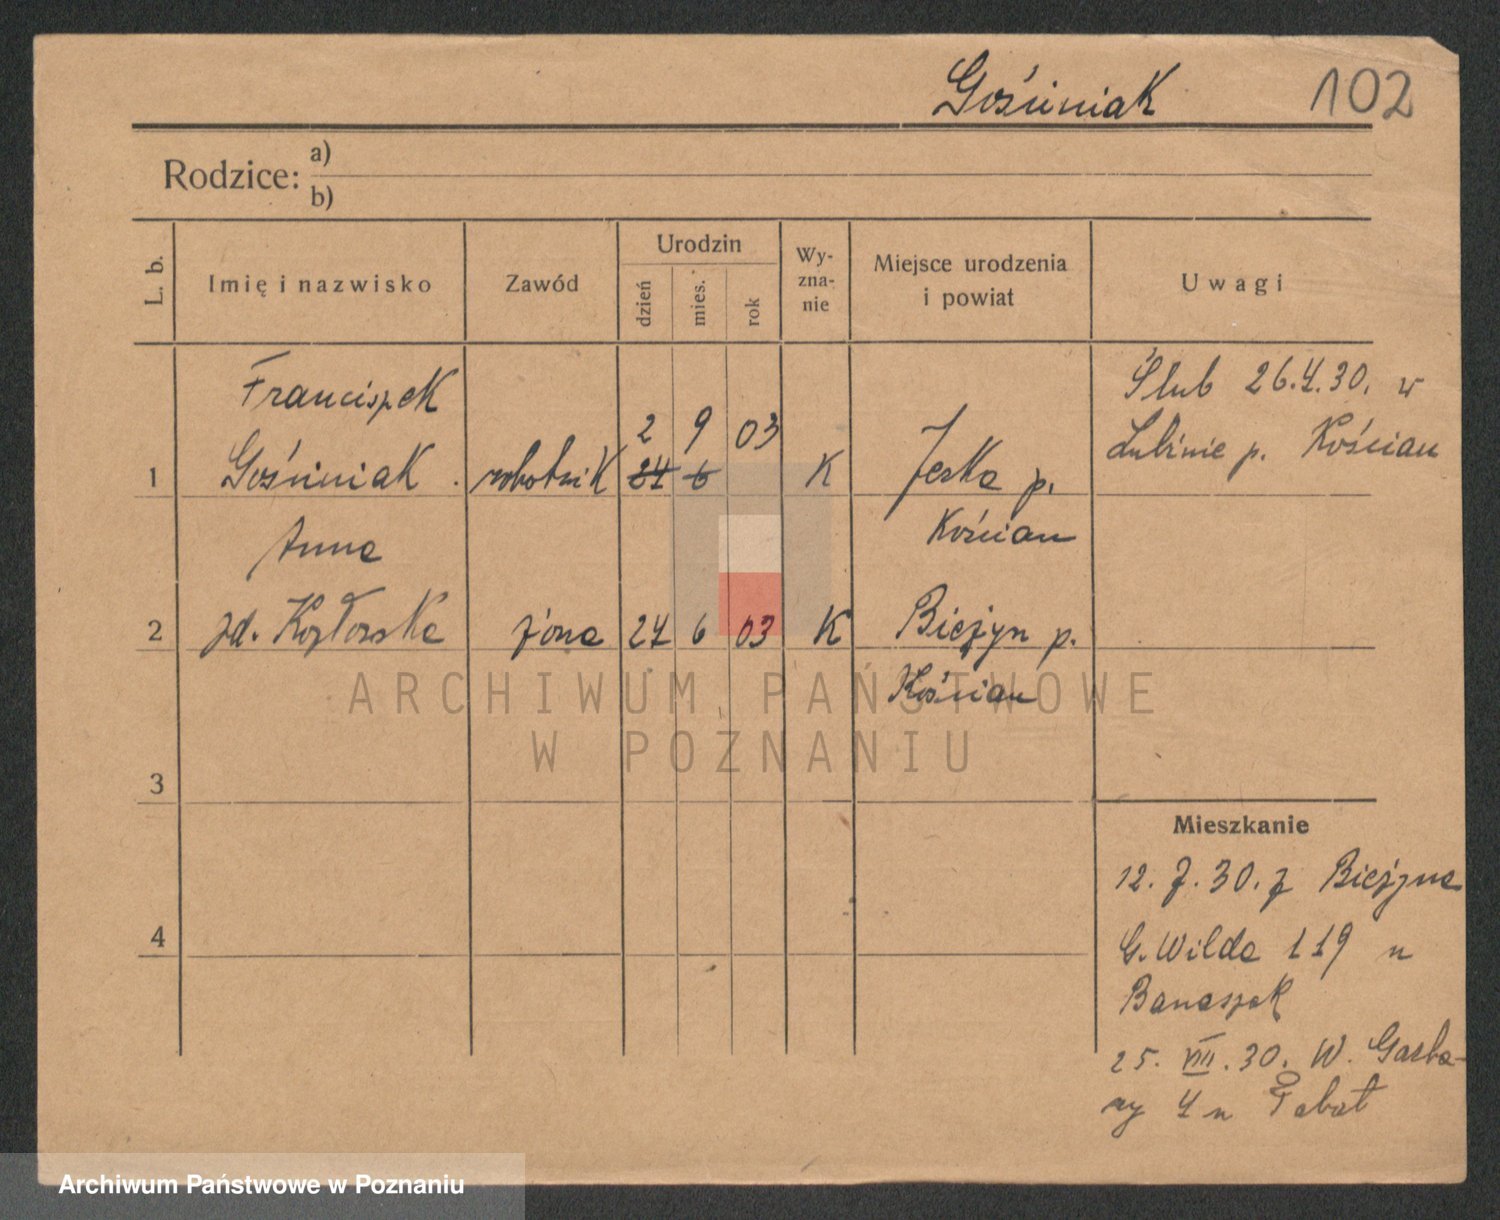 Gościniak 102
Rodzice: a)
b)
L. b.
Imię i nazwisko
Zawód
Urodzin
dzień
mies.
rok
Wy-
zna-
nie
Miejsce urodzenia
i powiat
Uwagi
Franciszek
Gościniak
1
robotnik
2 9 03
24 6
K
Jerka p.
Kościan
Ślub 26.4.30. w
Lubiniu p. Kościan
Anna
2
zd. Kozłowska
żona
24 6 03
K
Bieżyn p.
Kościan
3
4
Mieszkanie
12. 7. 30. z Bieżyna
G. Wilda 119 u
Banaszak
25. VIII. 30. W. Garba-
ry 4 u
ARCHIWUM PAŃSTWOWE
W POZNANIU
Archiwum Państwowe w Poznaniu